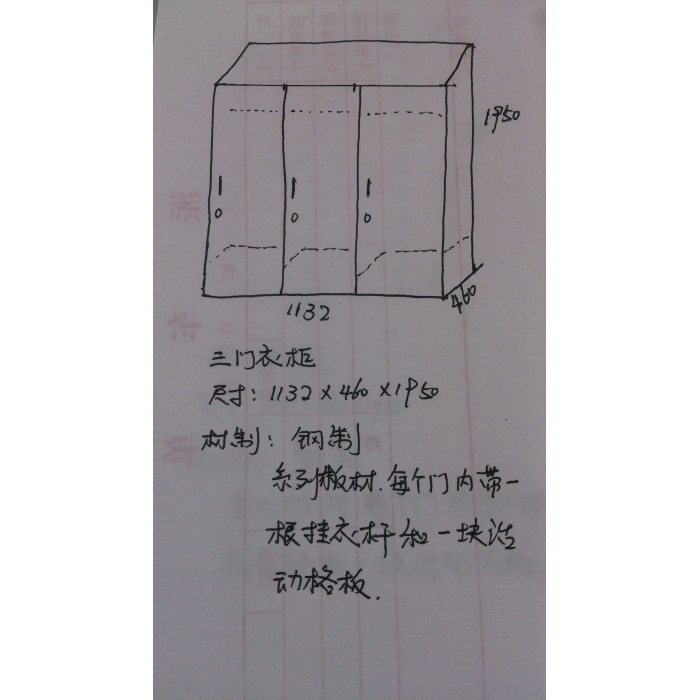 1950
460
1132
三门衣柜
尺寸：1132×460×1950
材制：钢制
板材.每个门内带一
根挂衣杆和一块活
动格板.